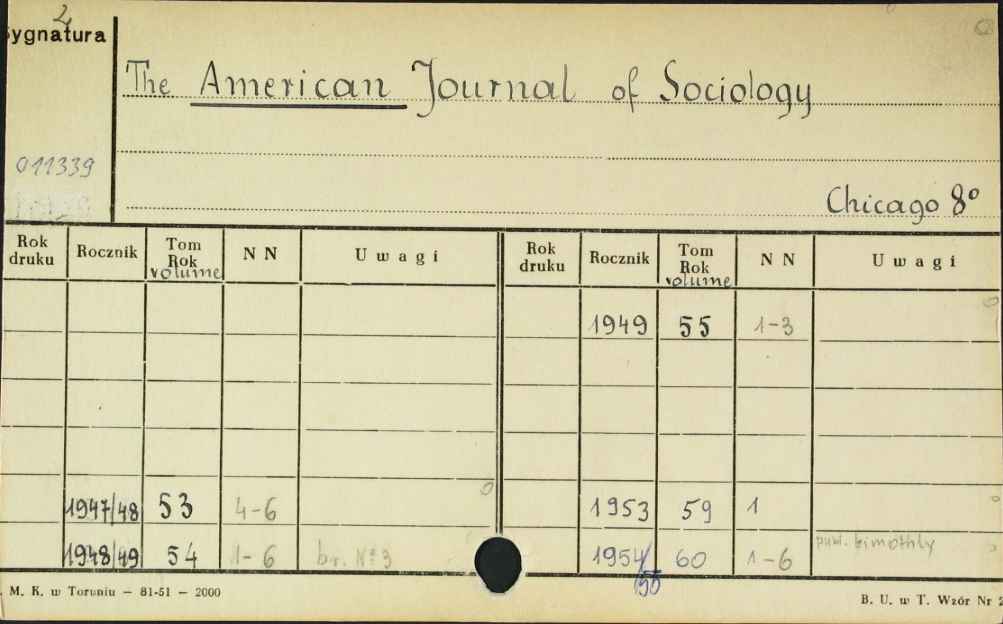 2
Sygnatura
The American Journal of Sociology
011339
Chicago 8°
Rok druku Rocznik Tom Rok volume N N Uwagi Rok druku Rocznik Tom Rok volume N N Uwagi
1949 55 1-3
1947/48 53 4-6 1953 59 1
1948/49 54 1-6 br. № 3 1954/55 60 1-6 bimothly
M. K. w Toruniu — 81-51 — 2000
B. U. w T. Wzór Nr 2